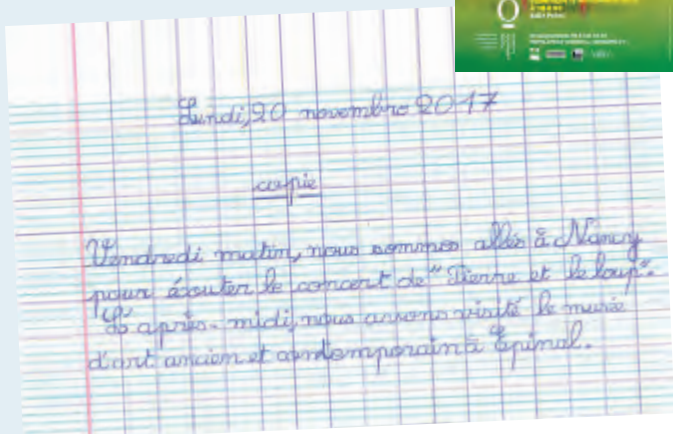 Lundi, 20 novembre 2017
copie
Vendredi matin, nous sommes allés à Nancy
pour écouter le concert de "Pierre et le loup".
L' après-midi, nous avons visité le musée
d'art ancien et contemporain à Épinal.